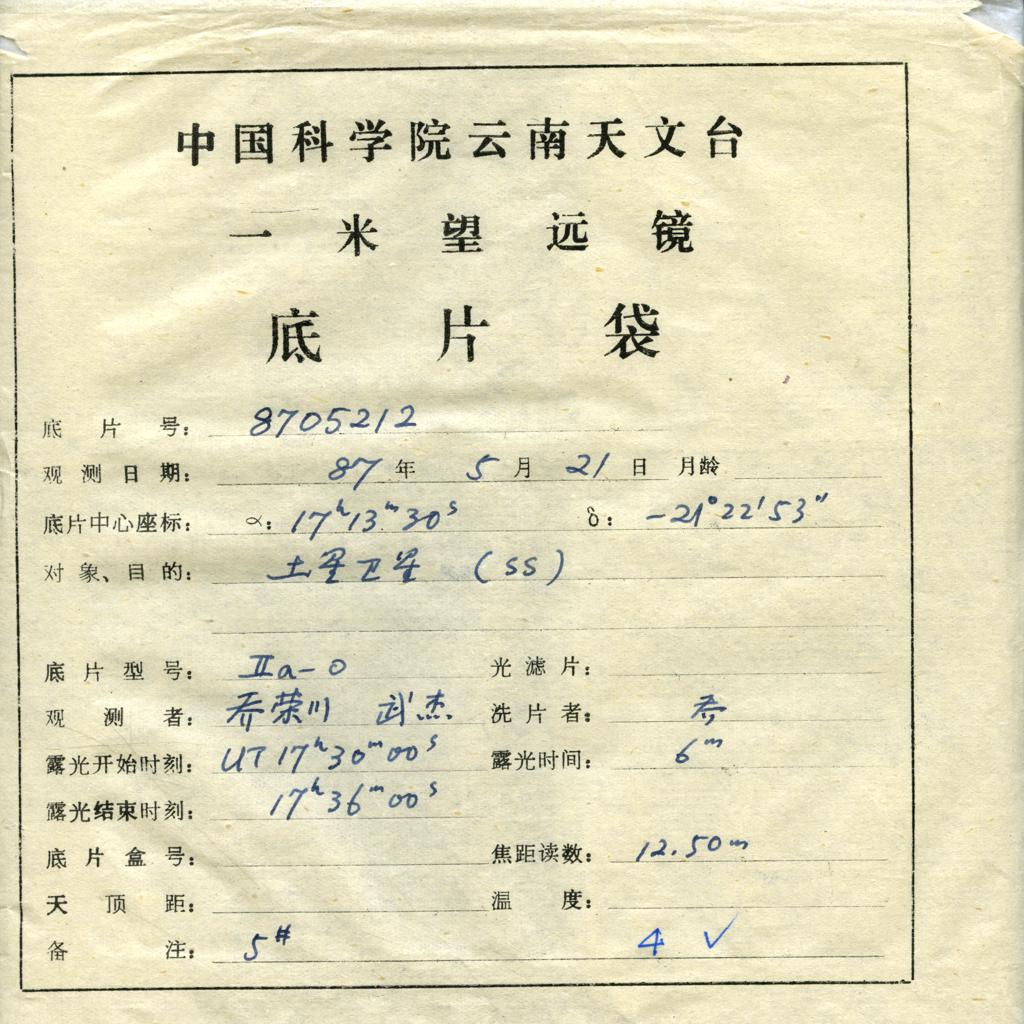 中国科学院云南天文台
一米望远镜
底片袋
底片号： 8705212
观测日期： 87年 5月 21日 月龄
底片中心座标： α：17h13m30s δ：-21°22′53″
对象、目的： 土星卫星 (SS)
底片型号： IIa-O 光滤片：
观测者： 乔荣川 武杰 洗片者： 乔
露光开始时刻： UT 17h30m00s 露光时间： 6m
露光结束时刻： 17h36m00s
底片盒号： 焦距读数： 12.50m
天顶距： 温度：
备注： 5# 4 ✓